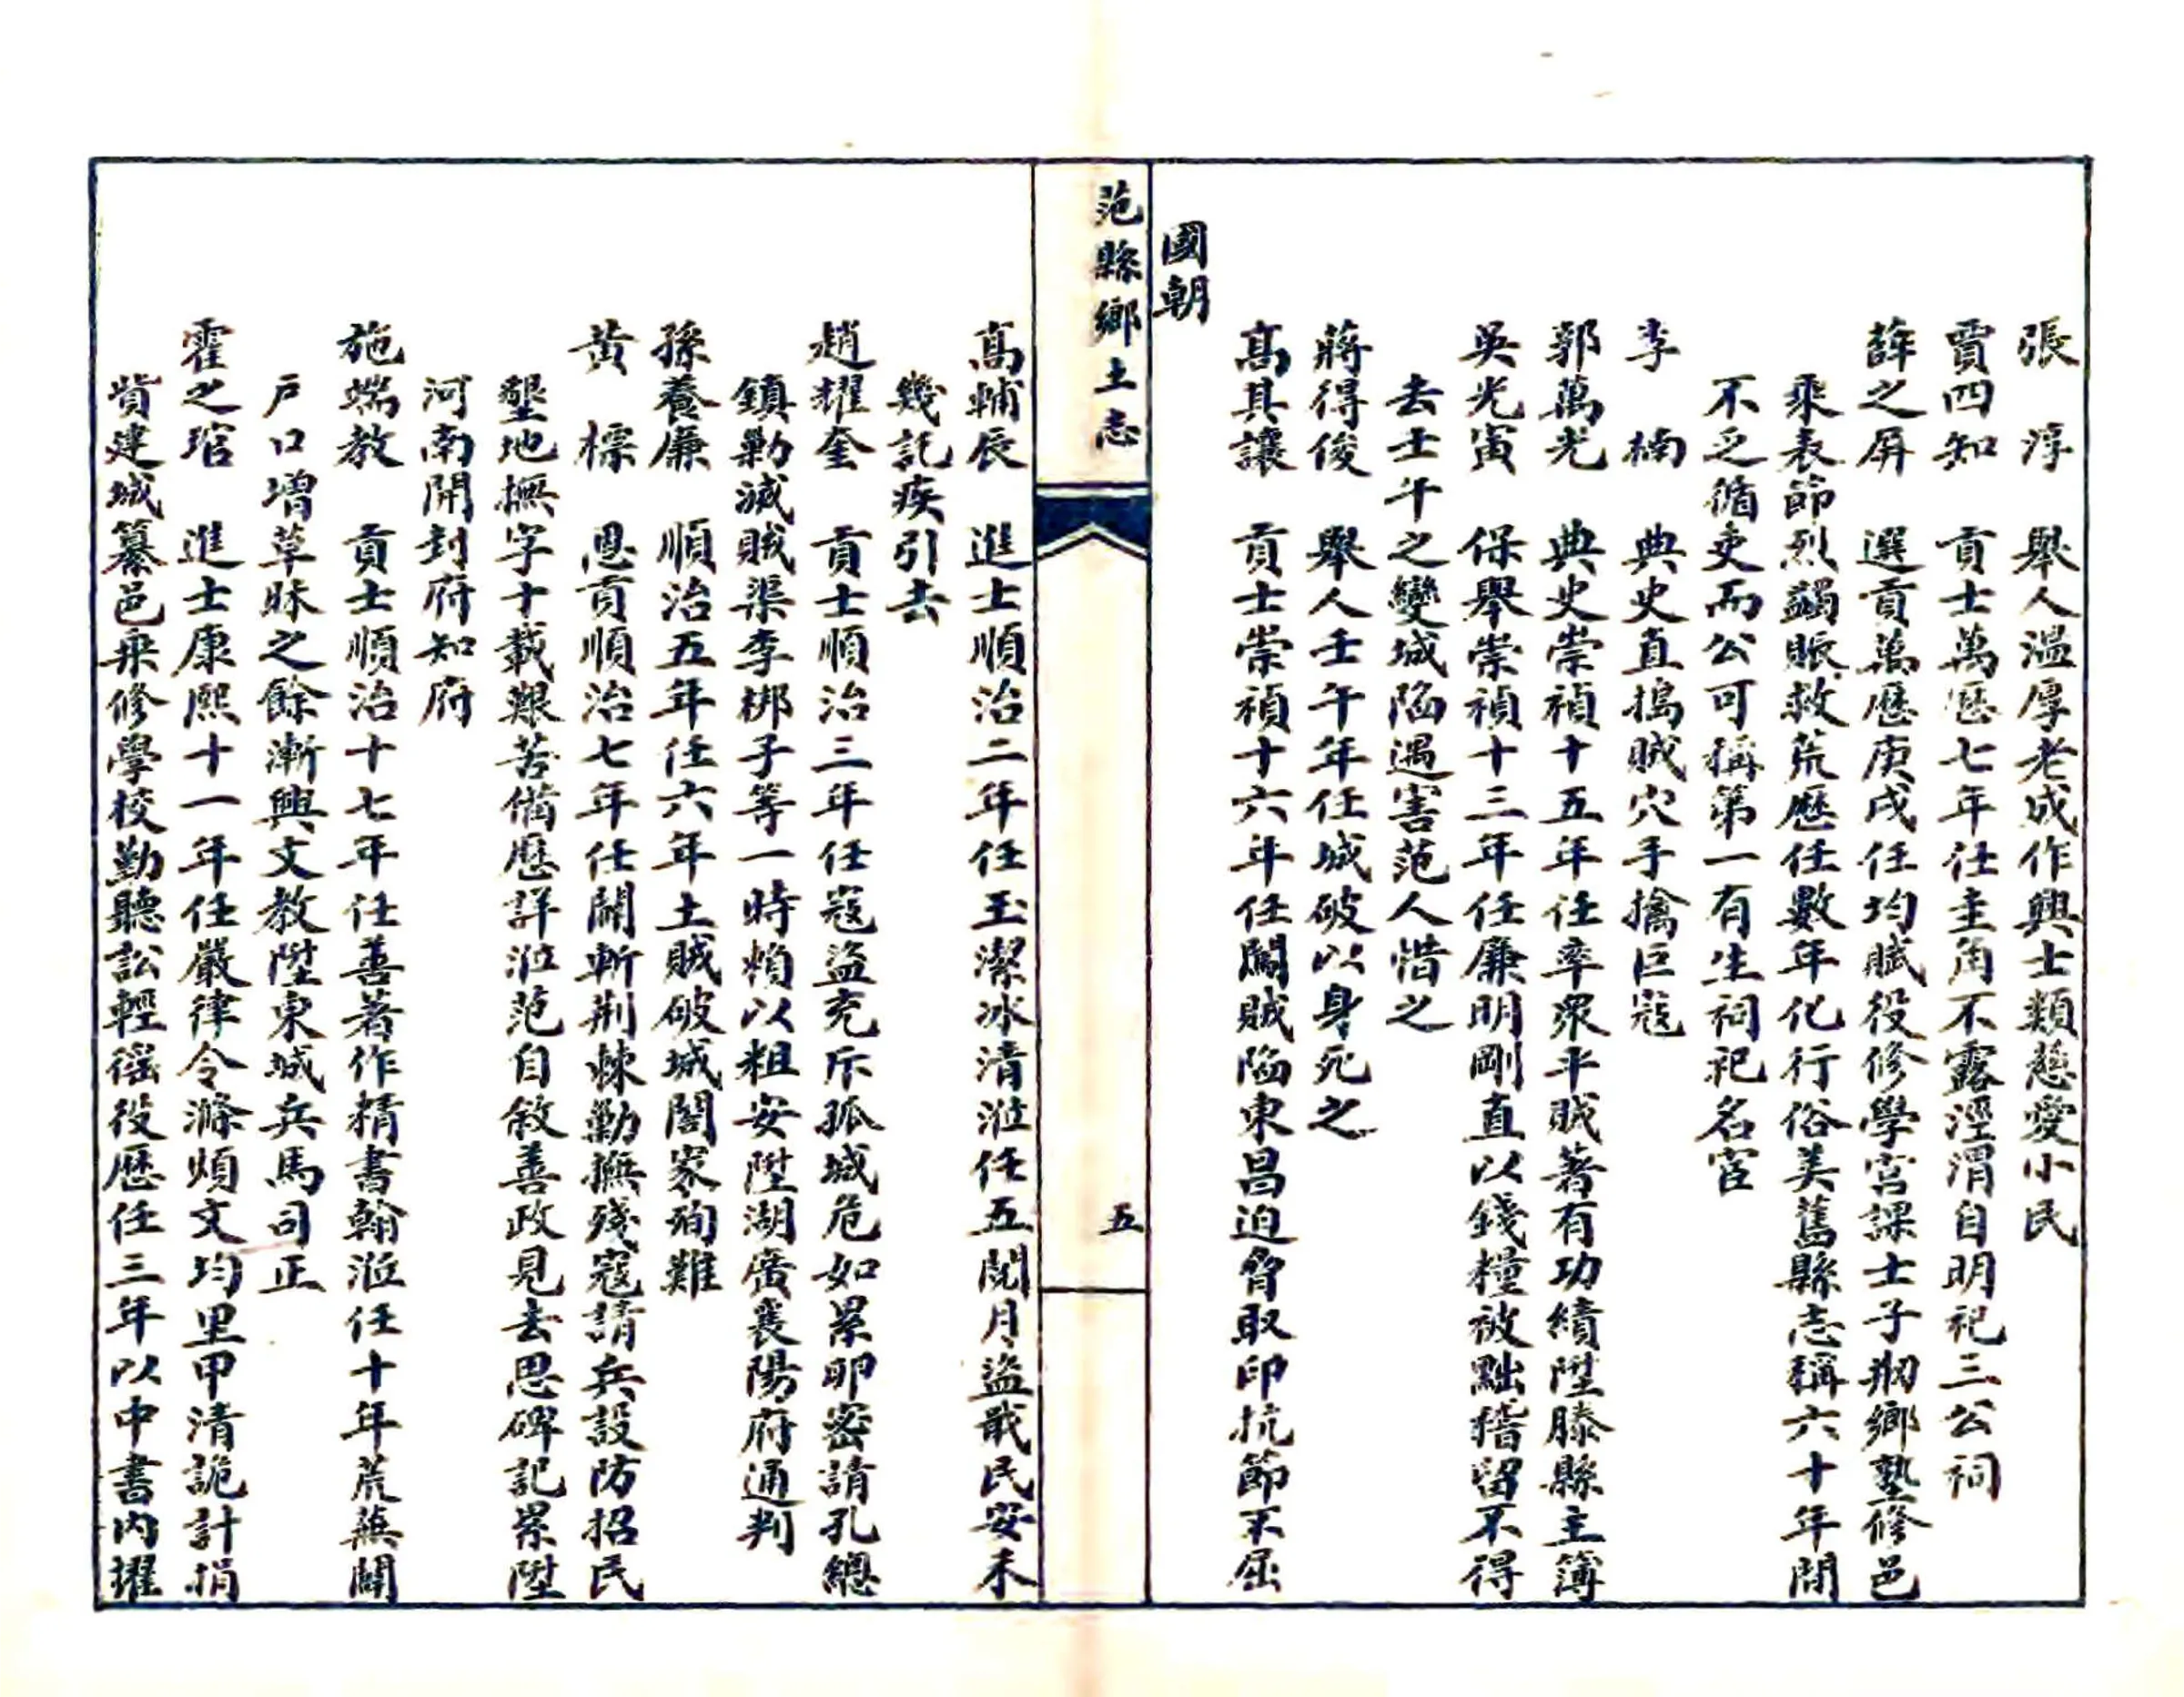 張　淳　舉人溫厚老成作興士類慈愛小民
賈四知　貢士萬歷七年任圭角不露涇渭自明祀三公祠
薛之屏　選貢萬歷庚戌任均賦役修學宮課士子剏鄉塾修邑
乘表節烈蠲賑救荒歷任數年化行俗美舊縣志稱六十年間
不乏循吏而公可稱第一有生祠祀名宦
李　楠　典史直搗賊穴手擒巨寇
郭萬光　典史崇禎十五年任率眾平賊著有功績陞滕縣主簿
吳光寅　保舉崇禎十三年任廉明剛直以錢糧被黜稽留不得
去壬午之變城陷遇害范人惜之
蔣得俊　舉人壬午年任城破以身死之
高其讓　貢士崇禎十六年任闖賊陷東昌迫脅取印抗節不屈
國朝
范縣鄉土志
五
高輔辰　進士順治二年任玉潔冰清涖任五閱月盜戢民安未
幾託疾引去
趙耀奎　貢士順治三年任寇盜充斥孤城危如累卵密請孔總
鎮勦滅賊渠李梆子等一時賴以粗安陞湖廣襄陽府通判
孫養廉　順治五年任六年土賊破城闔家殉難
黃　標　恩貢順治七年任闢斬荆棘勦撫殘寇請兵設防招民
墾地撫字十載艱苦備歷詳涖范自敘善政見去思碑記累陞
河南開封府知府
施端教　貢士順治十七年任善著作精書翰涖任十年荒蕪闢
戶口增草昧之餘漸興文教陞東城兵馬司正
霍之琯　進士康熙十一年任嚴律令滌煩文均里甲清詭計捐
貲建城纂邑乘修學校勤聽訟輕徭役歷任三年以中書內擢